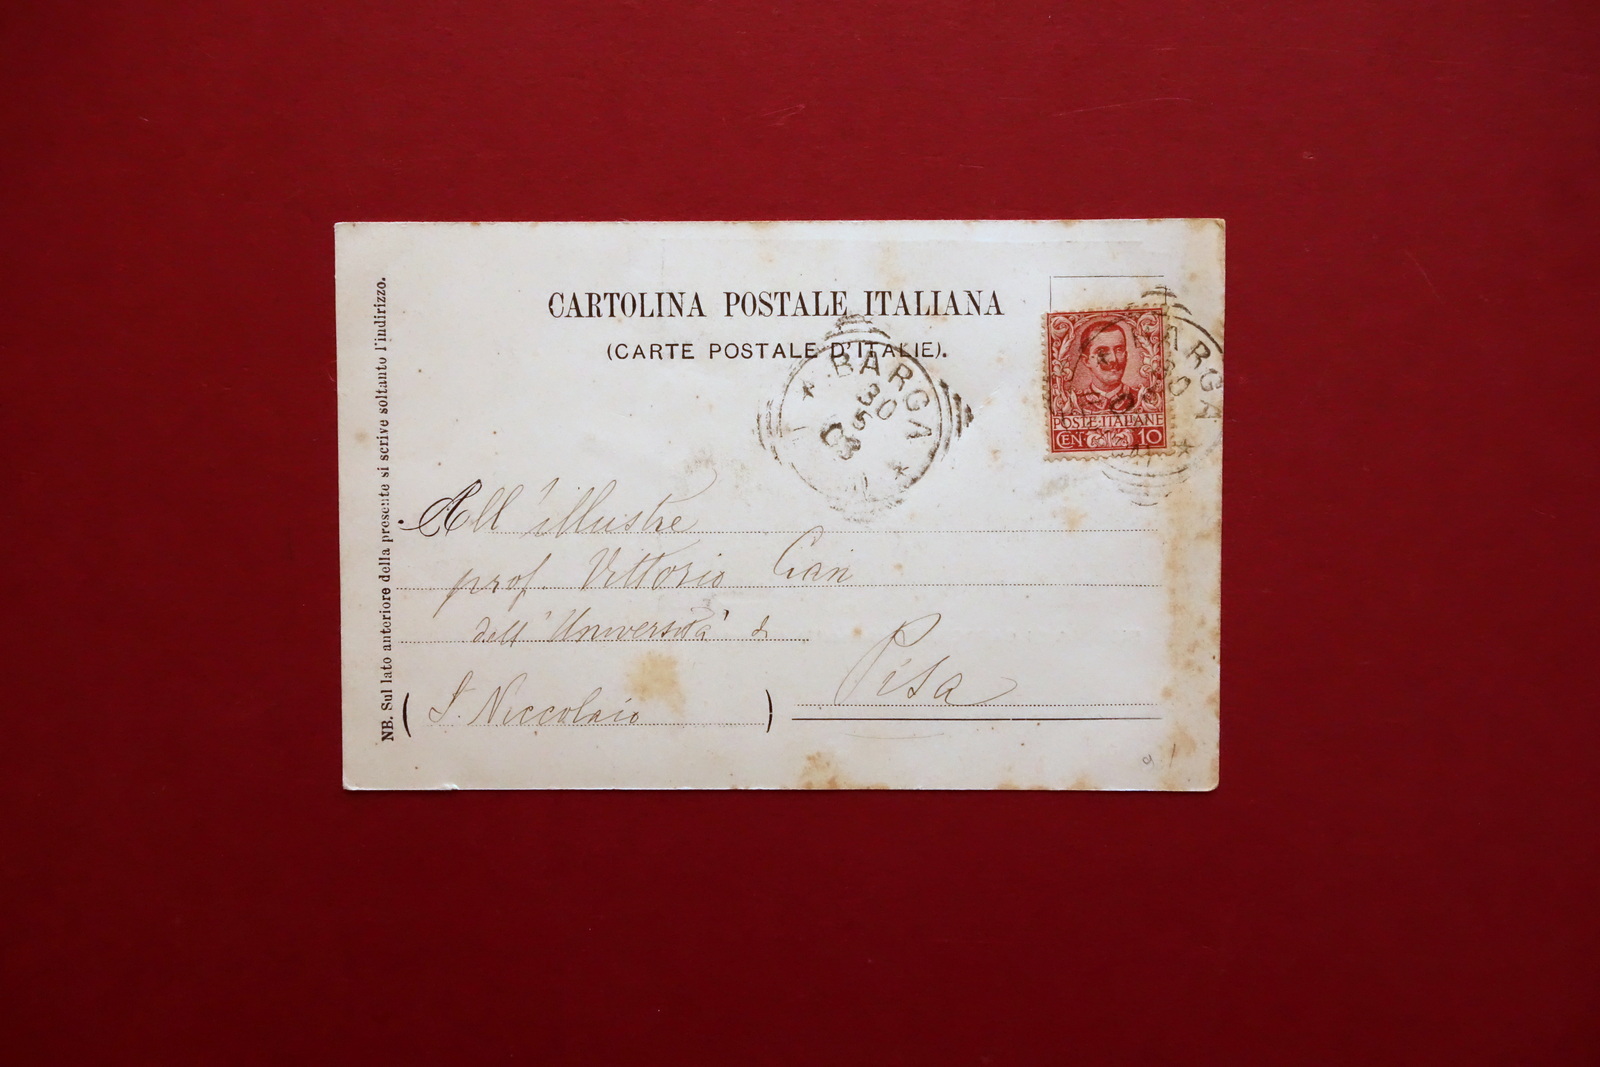 CARTOLINA POSTALE ITALIANA
(CARTE POSTALE D'ITALIE).
BARGA
30
5
03
BARGA
30
POSTE·ITALIANE
CEN. 10
All'illustre
prof. Vittorio Cian
dell'Università di
Pisa
(S. Niccolaio)
NB. Sul lato anteriore della presente si scrive soltanto l'indirizzo.